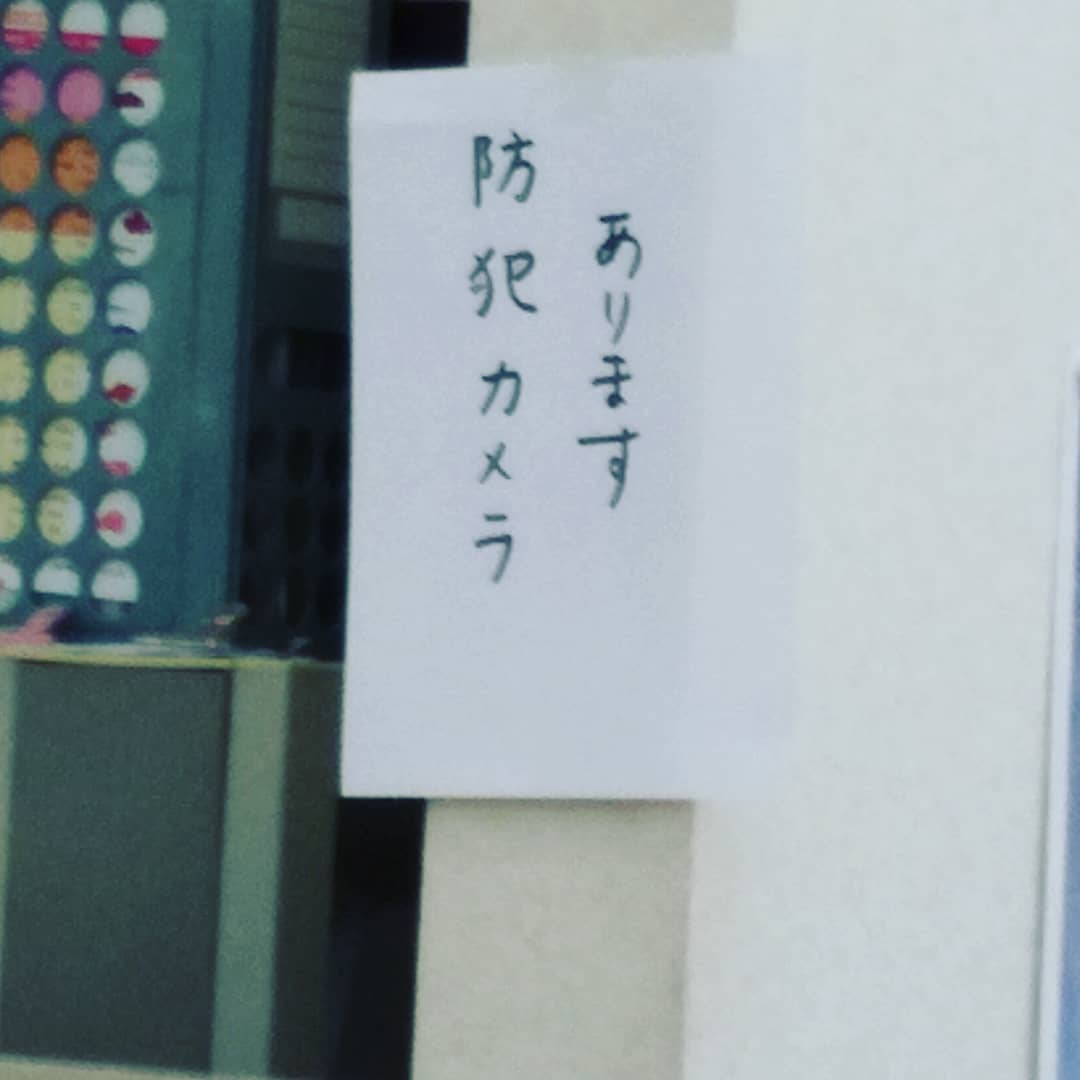 防犯カメラ
あります